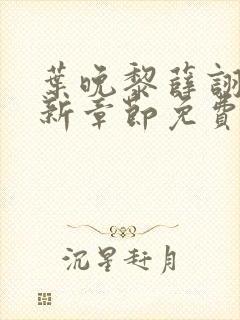 葉晚黎薛詡
新章節免費
沉星赶月